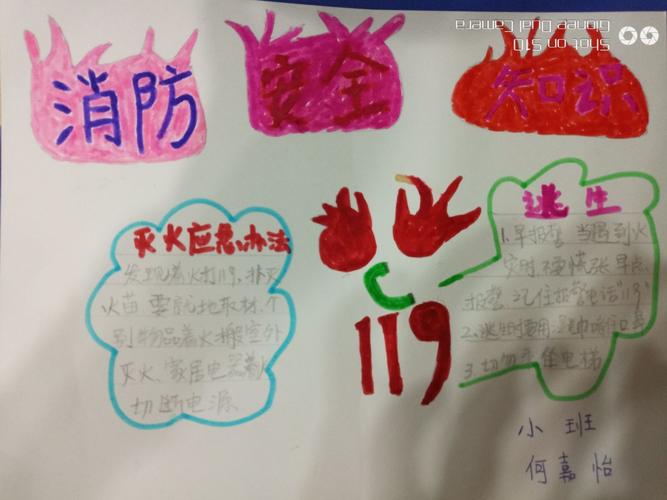 消防
安全
知识
灭火应急办法
发现着火打119、扑灭
火苗要就地取材、个
别物品着火搬室外
灭火、家居电器着火
切断电源、
119
逃生
1.早报警 当遇到火
灾时、不要慌张 早点
报警、记住报警电话"119"
2、逃生时要用湿毛巾捂住口鼻
3.切勿乘坐电梯
小班
何嘉怡
Shot on S10
Gionee Dual Camera